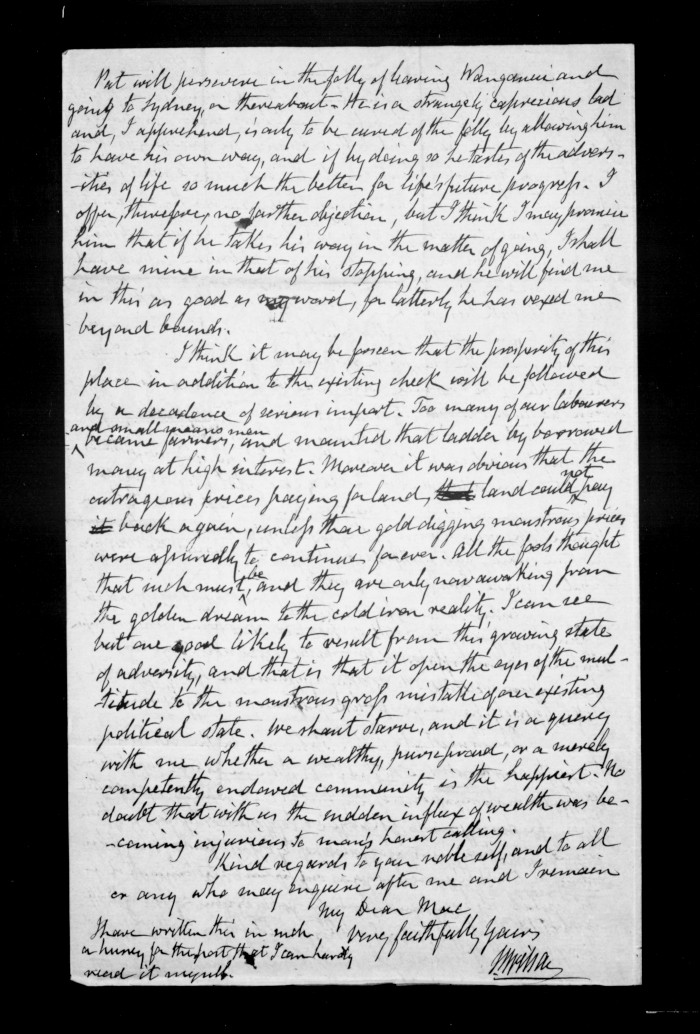 Pat will persevere in the folly of leaving Wanganui and
going to Sydney, or thereabout - He is a strangely capricious lad
and, I apprehend, is only to be cured of the folly by allowing him
to have his own way, and if by doing so he tastes of the advers-
-ities of life so much the better for life's future progress. I
offer, therefore, no further objection, but I think I may promise
him that if he takes his way in the matter of going, I shall
have mine in that of his stopping, and he will find me
in this as good as my word, for latterly he has vexed me
beyond bounds.
I think it may be forseen that the prosperity of this
place in addition to the existing check will be followed
by a decadence of serious import. Too many of our labourers
and small means men
became farmers, and mounted that ladder by borrowed
money at high interest. Moreover it was obvious that the
outrageous prices paying for land, land could not pay
back again, unless their gold digging monstrous prices
were assuredly to continue for ever. All the fools thought
that such must be, and they are only now awaking from
the golden dream to the cold iron reality. I can see
but one good likely to result from this growing state
of adversity, and that is that it open the eyes of the mul-
-titude to the monstrous gross mistake of our existing
political state. We shant starve, and it is a query
with me whether a wealthy, purseproud, or a merely
competently endowed community is the happiest. No
doubt that with us the sudden influx of wealth was be-
-coming injurious to man's honest calling.
Kind regards to your noble self, and to all
or any who may enquire after me and I remain
My Dear Mac
very faithfully Yours
I have written this in such
a hurry for the post that I can hardly
read it myself.